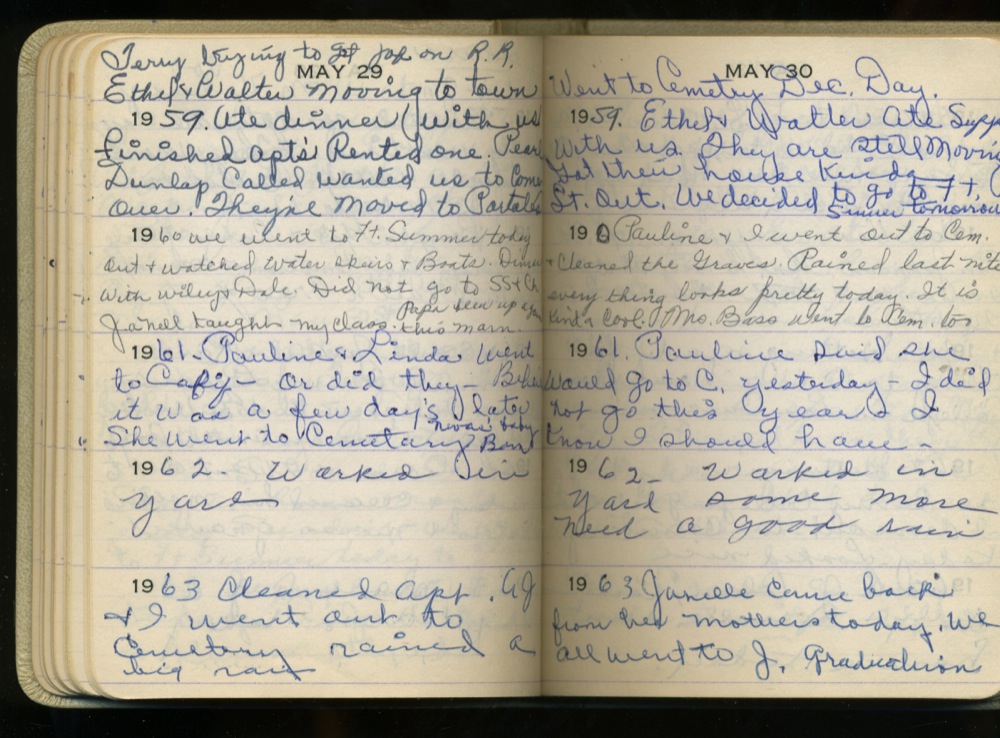 Terry trying to get job on R.R.
MAY 29
Ethel & Walter moving to town
1959. Ate dinner (with us
finished apts Rented one. Pearl
Dunlap Called wanted us to Come
Over. They're Moved to Portales
1960 we went to Ft. Sumner today
out & watched water skiers & Boats. Dinner
with wiley & Dale. Did not go to SS & Ch
Janell taught my class. this morn.
Papa been up
1961 - Pauline & Linda went
to - or did they -
it was a few day's later
baby Born
She went to Cemetary
1962 - Worked in
yard
1963 Cleaned apt. AJ
& I went out to
Cemetery rained a
big rain
MAY 30
Went to Cemetry Dec. Day.
1959. Ethel & Walter ate Supp
with us. They are still Movin
Got their house Kinda
St. Out. We decided to go to Ft.
Sumner tomorrow
19 0 Pauline & I went out to Cem.
& Cleaned the Graves. Rained last nite
every thing looks pretty today. It is
Kinda Cool. Mrs. Bass went to Cem. too
1961. Pauline said she
would go to C. yesterday - I did
not go this year & I
know I should have -
1962 - Worked in
yard some more
need a good rain
1963 Janelle came back
from her mothers today. We
all went to J. Graduation